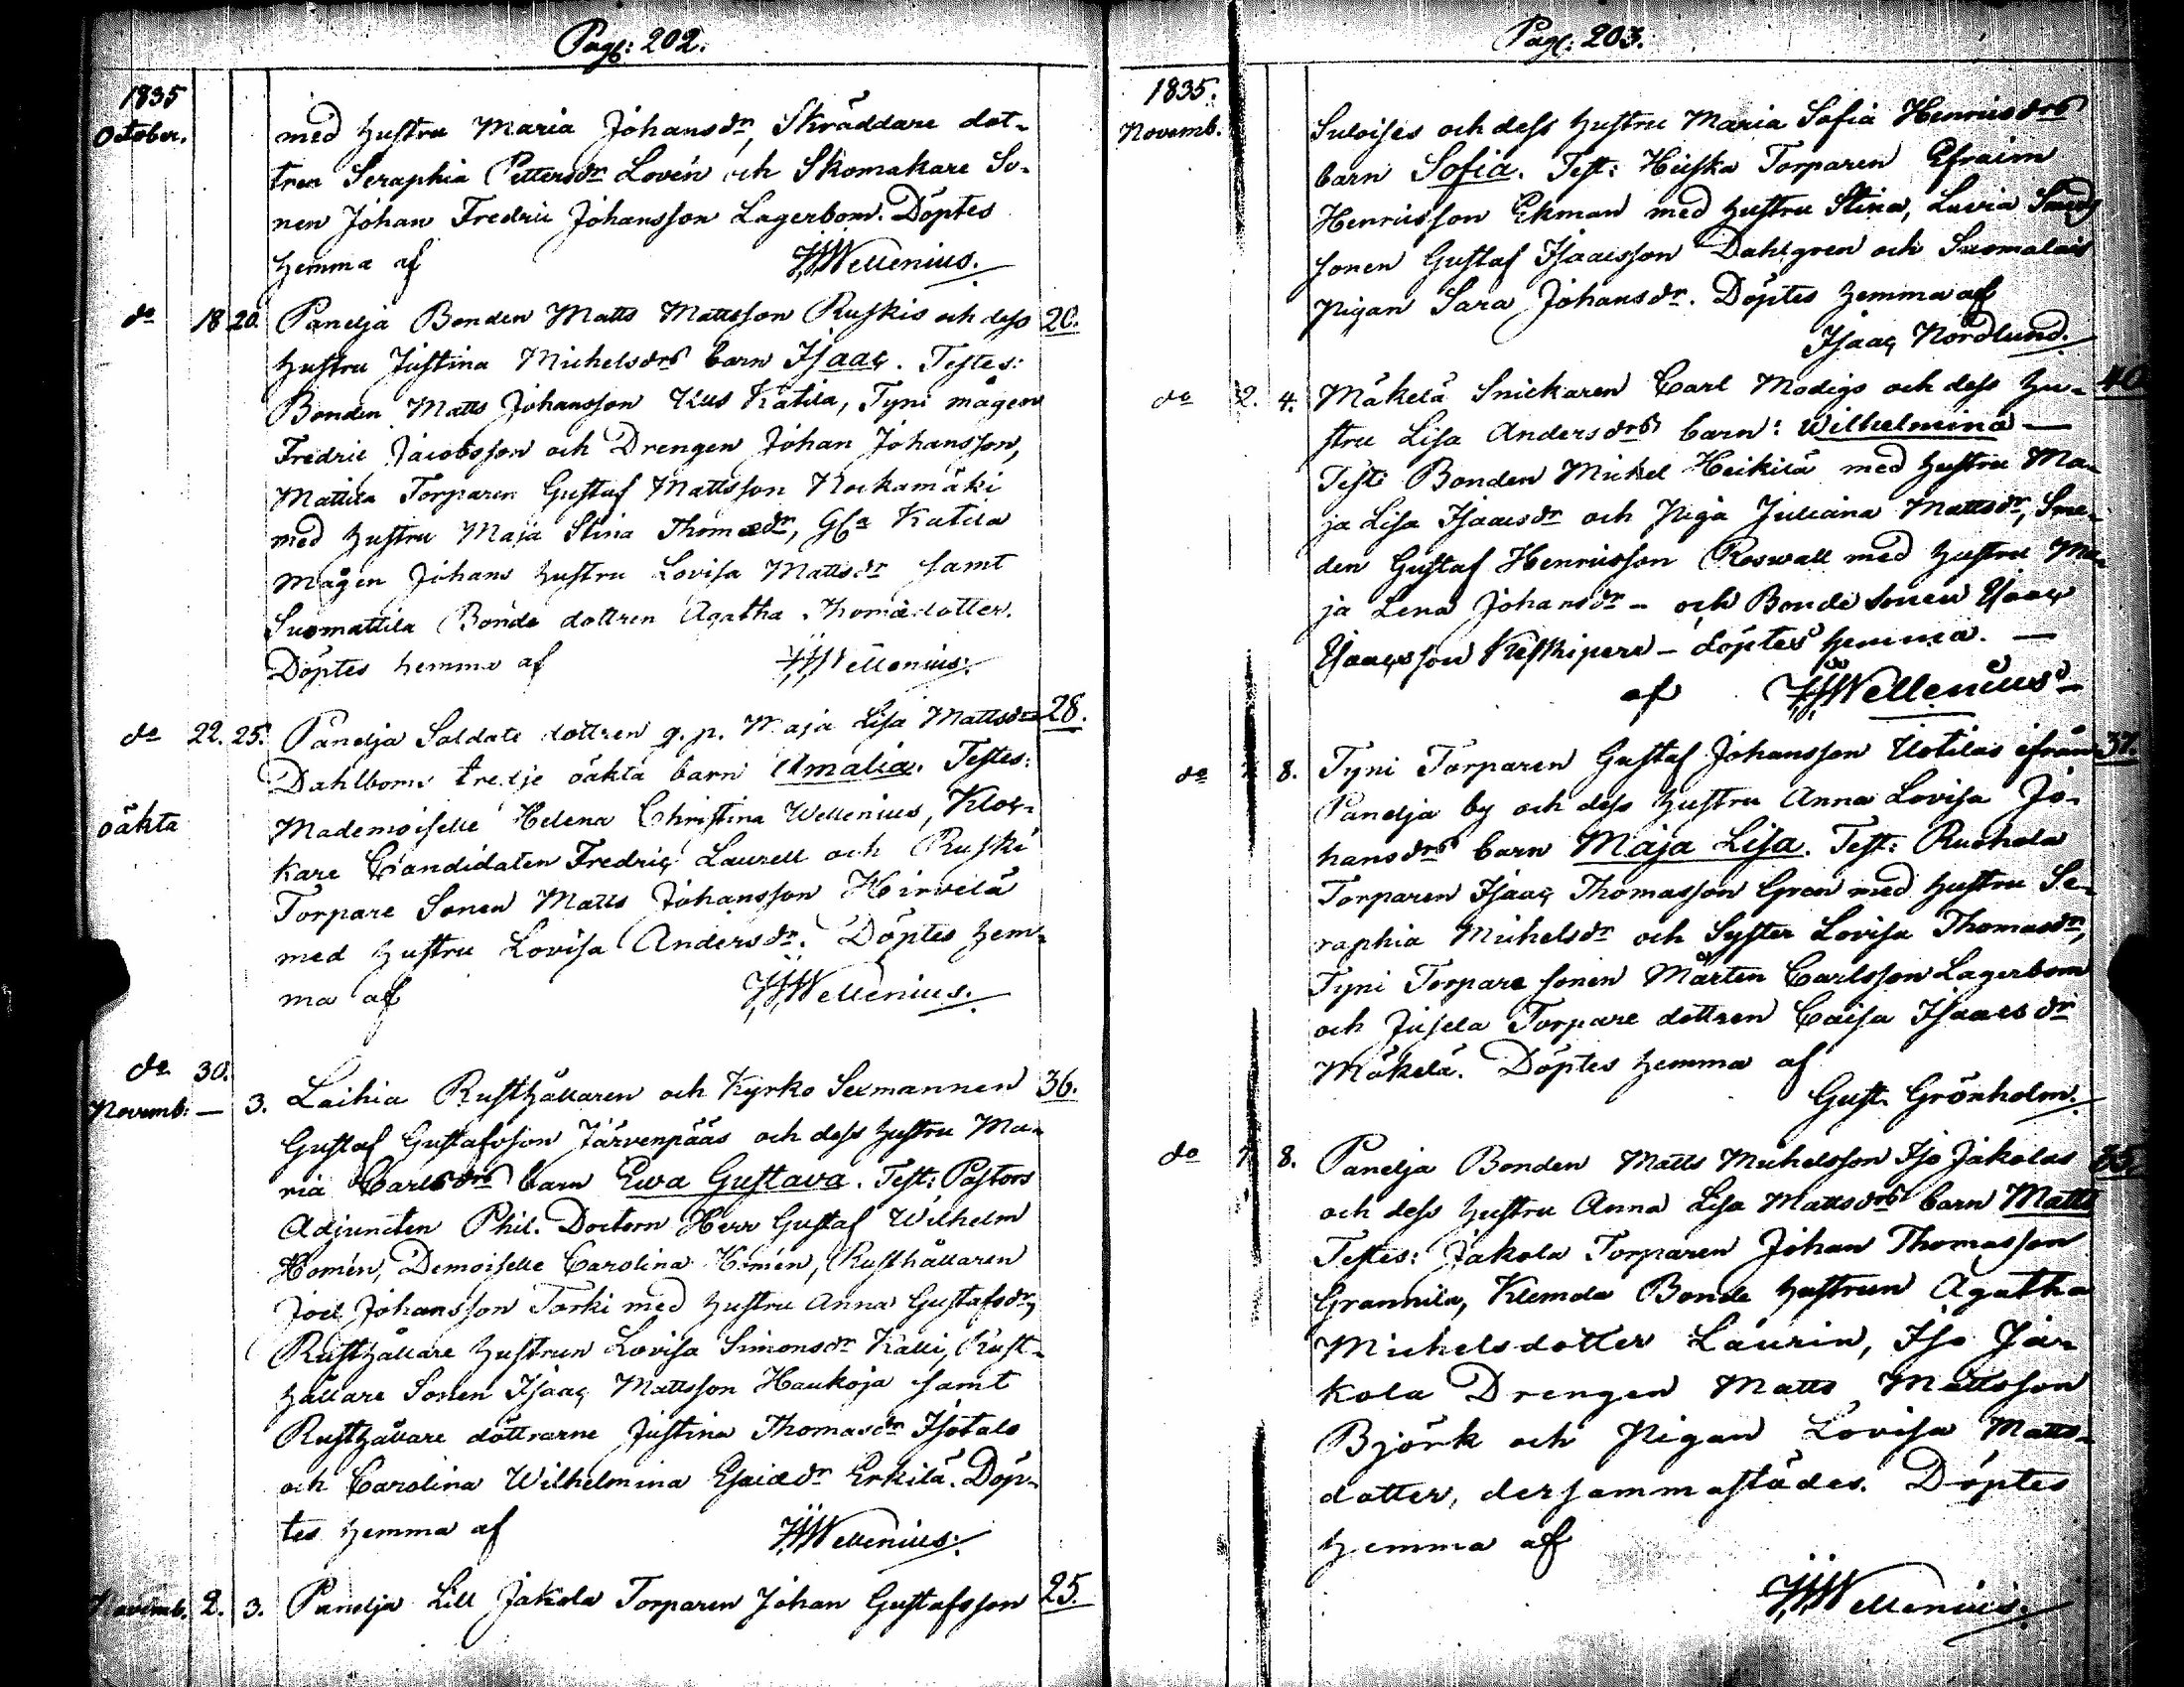 Pag: 202.
1835
October.
med hustru Maria Johansdr, Skräddare dot-
tren Seraphia Pettersdr Lovén och Skomakare So-
nen Johan Fredric Johansson Lagerbom. Döptes
hemma af JJWellenius.
do 18 20. Panelja Bonden Matts Mattsson Ruskis och dess 20.
hustru Justina Michelsdrs barn Isaac. Testes:
Bonden Matts Johansson Katila, Tyni mågen
Fredric Jacobsson och Drengen Johan Johansson,
Mattila Torparen Gustaf Mattsson Kockamäki
med hustru Maja Stina Thomædr, Katila
mågen Johans hustru Lovisa Mattsdr samt
Suomattila Bonde dottren Agatha Thomædotter.
Döptes hemma af JJWellenius.
do 22. 25. Panelja Soldate dottren q. p. Maja Lisa Mattsdr 28.
Dahlboms tredje oäkta barn Amalia. Testes:
oäkta Mademoiselle Helena Christina Wellenius, Kloc-
kare Candidaten Fredric Laurell och Ruski
Torpare Sonen Matts Johansson Hirvelä
med hustru Lovisa Andersdr. Döptes hem-
ma af JJWellenius.
do 30.
Novemb: — 3. Laihia Rusthållaren och Kyrko Sexmannen 36.
Gustaf Gustafsson Järvenpääs och dess hustru Ma-
ria Carlsdrs barn Ewa Gustava. Test: Pastors
Adjuncten Phil. Doctorn Herr Gustaf Wilhelm
Homén, Demoiselle Carolina Homén, Rusthållaren
Joel Johansson Torki med hustru Anna Gustafsdr,
Rusthållare hustrun Lovisa Simonsdr Kalli, Rust-
hållare Sonen Isaac Mattsson Haukoja samt
Rusthållare döttrarne Justina Thomasdr Isotalo
och Carolina Wilhelmina Esaiædr Erkilä. Döp-
tes hemma af JJWellenius.
Novemb. 2. 3. Panelja Lill Jakola Torparen Johan Gustafsson 25.
Pag: 203.
1835.
Novemb.
Suloises och dess hustru Maria Sofia Henricsdrs
barn Sofia. Test: Heiska Torparen Efraim
Henricsson Ekman med hustru Stina, Lavia
sonen Gustaf Isaacsson Dahlgren och Suomalais
Pigan Sara Johansdr. Döptes hemma af
Isaac Nordlund.
do 2. 4. Mäkelä Snickaren Carl Modigs och dess hu- 40
stru Lisa Andersdrs barn: Wilhelmina —
Test: Bonden Michel Heikilä med hustru Ma-
ja Lisa Isaacsdr och Piga Juliana Mattsdr, Sme-
den Gustaf Henricsson Roswall med hustru Ma-
ja Lena Johansdr — och Bonde sonen Isaac
Isaacsson Keskipere — döptes hemma. —
af JJWellenius
do 8. Tyni Torparen Gustaf Johansson Uotilas ifrån 37.
Panelja by och dess hustru Anna Lovisa Jo-
hansdrs barn Maja Lisa. Test: Ruohola
Torparen Isaac Thomasson Green med hustru Se-
raphia Michelsdr och Syster Lovisa Thomasdr,
Tyni Torpare sonen Mårten Carlsson Lagerbom
och Jusela Torpare dottren Caisa Isaacsdr
Mäkelä. Döptes hemma af
Gust. Grönholm.
do 7. 8. Panelja Bonden Matts Michelsson Iso Jakolas 35.
och dess hustru Anna Lisa Mattsdrs barn Matts
Testes: Jakola Torparen Johan Thomasson
Grannila, Klemola Bonde hustrun Agatha
Michelsdotter Laurin, Iso Ja-
kola Drengen Matts Mattsson
Björk och Pigan Lovisa Matts-
dotter, dersammastädes. Döptes
hemma af
JJWellenius.